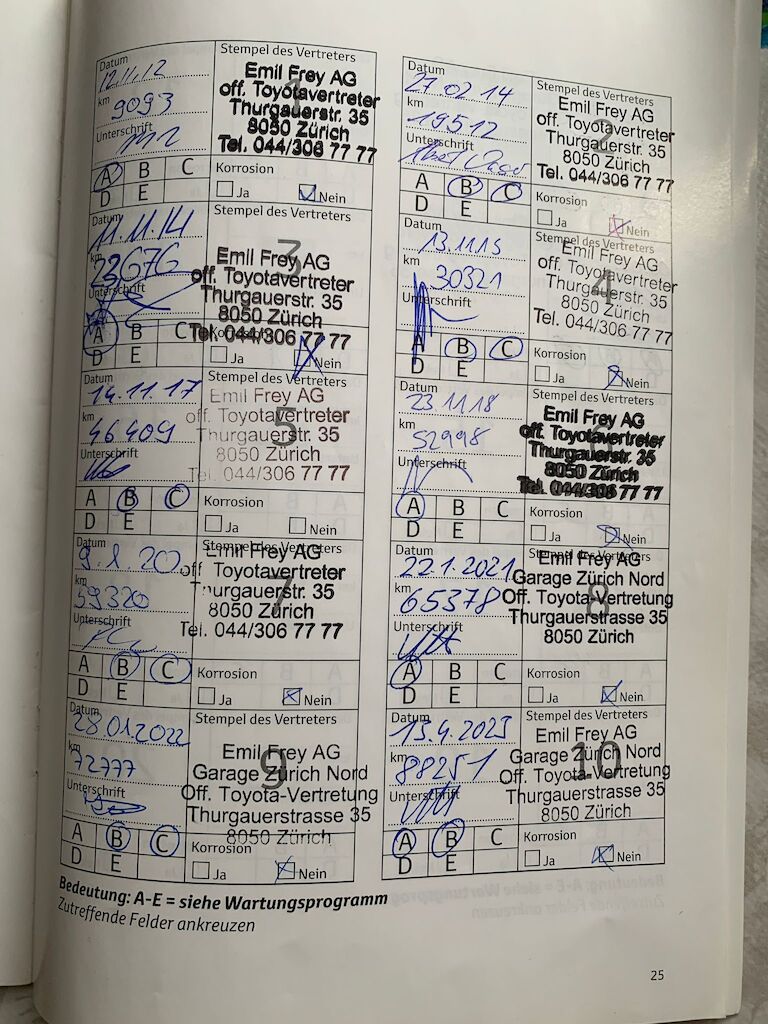 Datum
12.11.12
km
9093
Unterschrift
Stempel des Vertreters
1
Emil Frey AG
off. Toyotavertreter
Thurgauerstr. 35
8050 Zürich
Tel. 044/306 77 77
A B C
D E
Korrosion
Ja Nein
Datum
27 02 14
km
19512
Unterschrift
Stempel des Vertreters
2
Emil Frey AG
off. Toyotavertreter
Thurgauerstr. 35
8050 Zürich
Tel. 044/306 77 77
A B C
D E
Korrosion
Ja Nein
Datum
11.11.14
km
23676
Unterschrift
Stempel des Vertreters
3
Emil Frey AG
off. Toyotavertreter
Thurgauerstr. 35
8050 Zürich
Tel. 044/306 77 77
A B C
D E
Korrosion
Ja Nein
Datum
13.11.15
km
30321
Unterschrift
Stempel des Vertreters
4
Emil Frey AG
off. Toyotavertreter
Thurgauerstr. 35
8050 Zürich
Tel. 044/306 77 77
A B C
D E
Korrosion
Ja Nein
Datum
14.11.17
km
46409
Unterschrift
Stempel des Vertreters
5
Emil Frey AG
off. Toyotavertreter
Thurgauerstr. 35
8050 Zürich
Tel. 044/306 77 77
A B C
D E
Korrosion
Ja Nein
Datum
23.11.18
km
52998
Unterschrift
Stempel des Vertreters
Emil Frey AG
off. Toyotavertreter
Thurgauerstr. 35
8050 Zürich
Tel. 044/306 77 77
A B C
D E
Korrosion
Ja Nein
Datum
9.1.20
km
59320
Unterschrift
Stempel des Vertreters
7
Emil Frey AG
off. Toyotavertreter
Thurgauerstr. 35
8050 Zürich
Tel. 044/306 77 77
A B C
D E
Korrosion
Ja Nein
Datum
22.1.2021
km
65378
Unterschrift
Stempel des Vertreters
8
Emil Frey AG
Garage Zürich Nord
Off. Toyota-Vertretung
Thurgauerstrasse 35
8050 Zürich
A B C
D E
Korrosion
Ja Nein
Datum
28.01.2022
km
72777
Unterschrift
Stempel des Vertreters
9
Emil Frey AG
Garage Zürich Nord
Off. Toyota-Vertretung
Thurgauerstrasse 35
8050 Zürich
A B C
D E
Korrosion
Ja Nein
Datum
13.4.2023
km
88251
Unterschrift
Stempel des Vertreters
10
Emil Frey AG
Garage Zürich Nord
Off. Toyota-Vertretung
Thurgauerstrasse 35
8050 Zürich
A B C
D E
Korrosion
Ja Nein
Bedeutung: A-E = siehe Wartungsprogramm
Zutreffende Felder ankreuzen
25